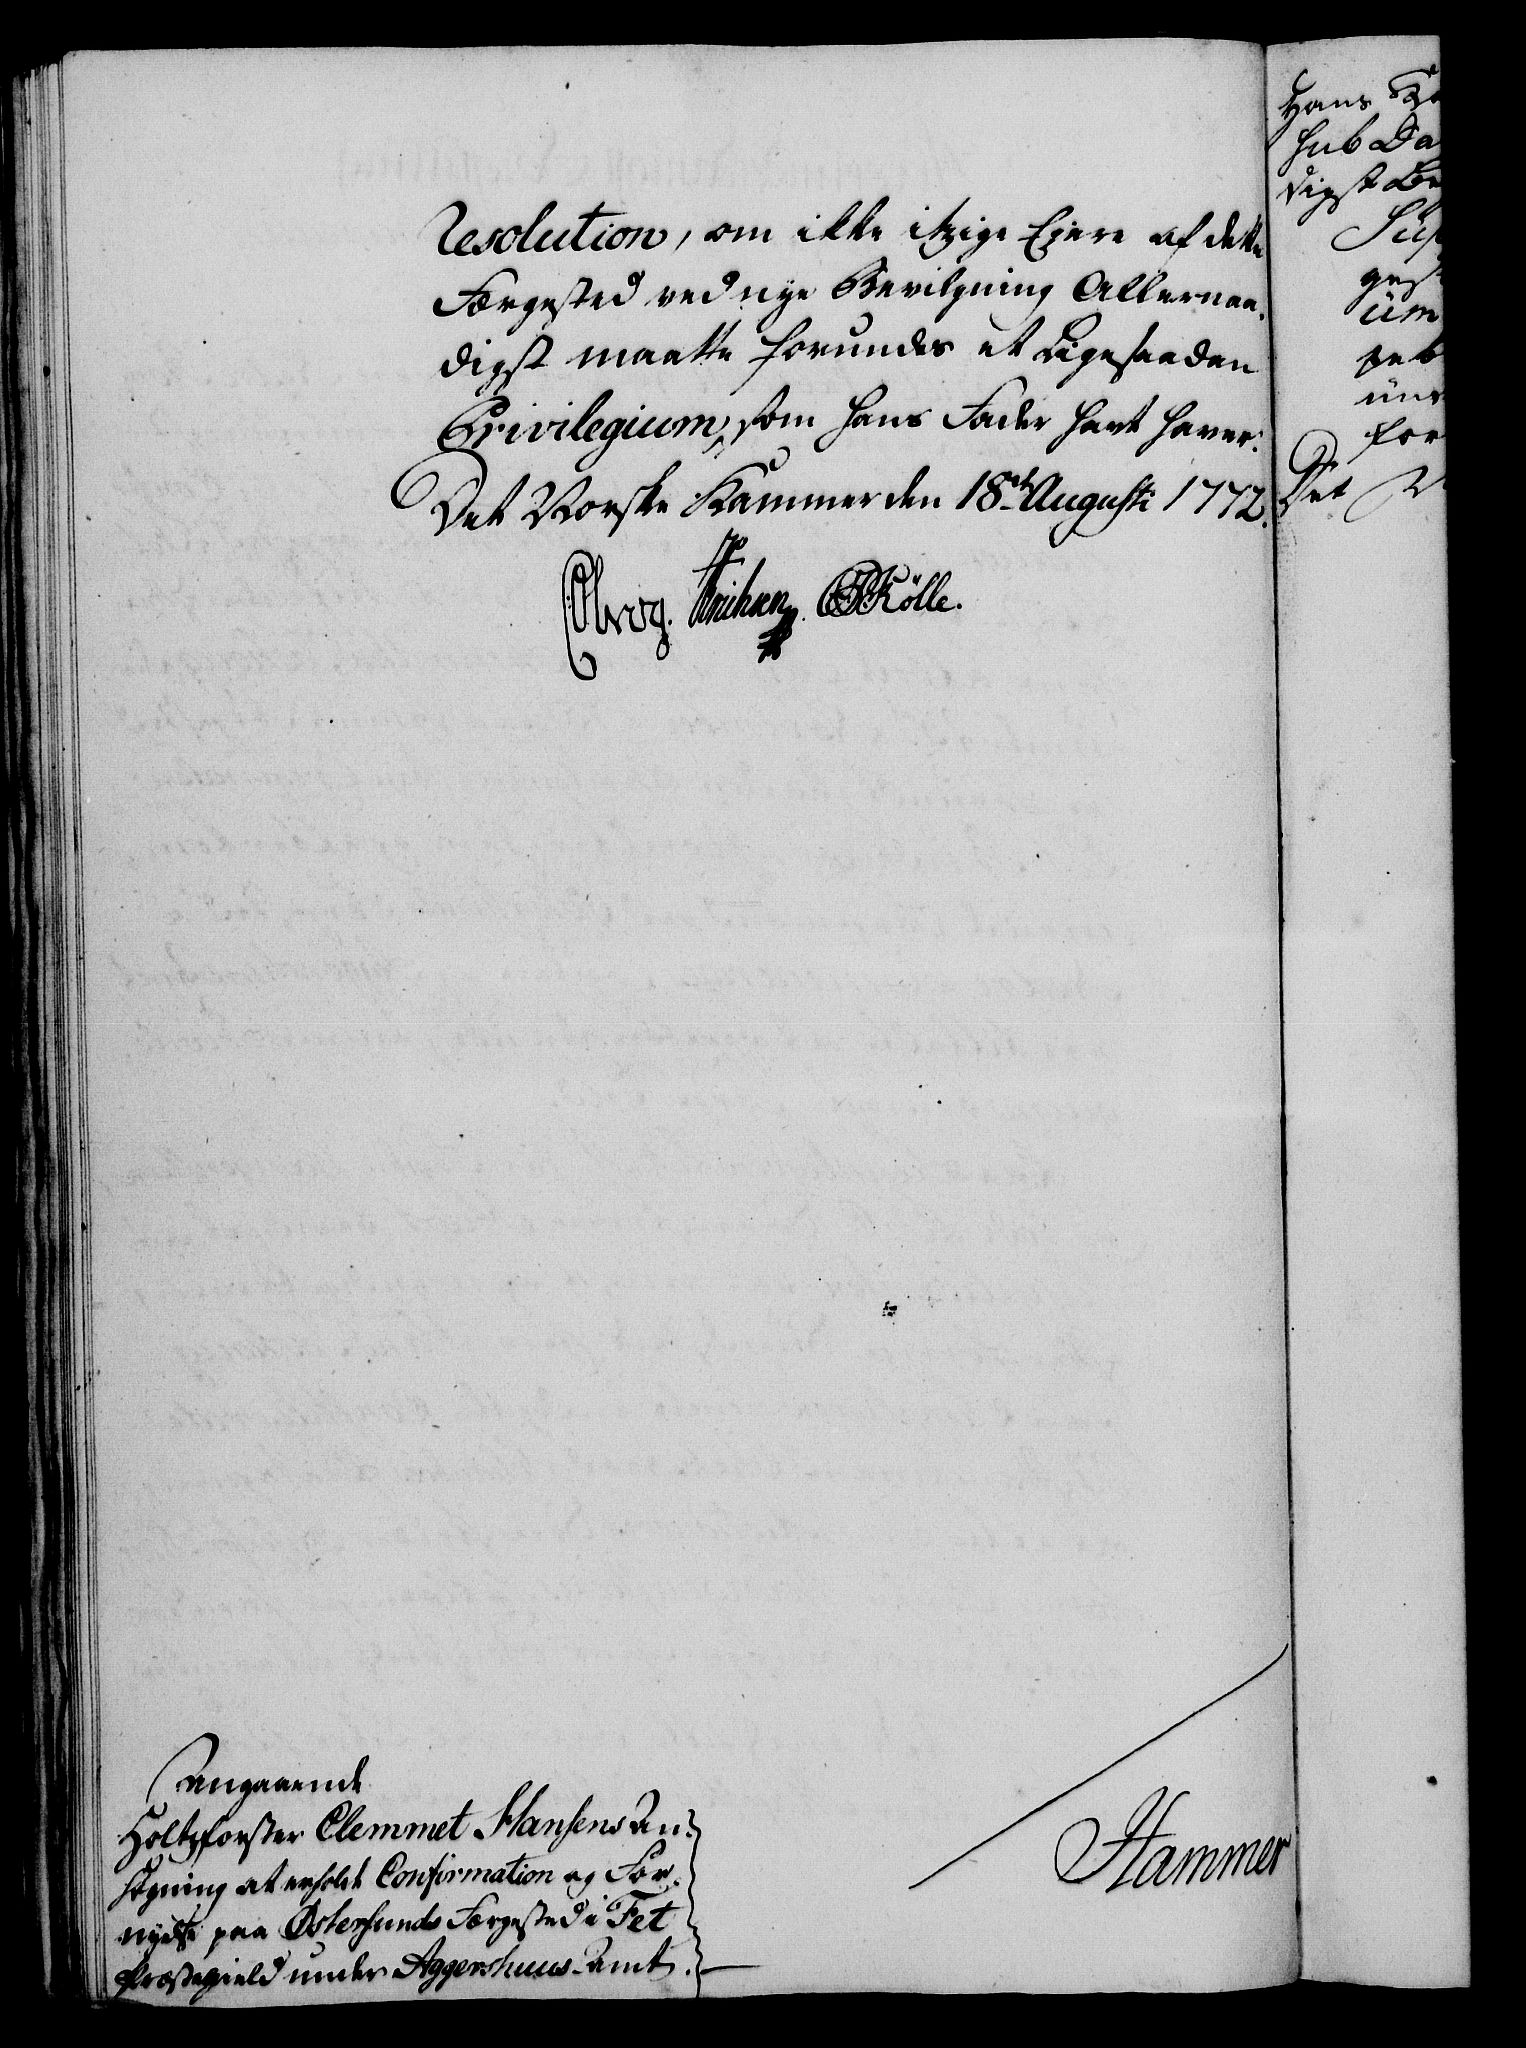 Resolution, om ikke itzige Ejere af dette
Færgested ved nye Bevilgning Allernaa-
digst maatte forundes et Ligesaadan
Privilegium, som hans Fader havt haver.
Det Norske Kammer den 18de Augusti 1772.
Kölle.
Angaaende
Holtzforster Clemmet Hansens An-
søgning at erholde Confirmation og For-
nyelse paa Østersunds Færgested i Fet
Præstegield under Aggershuus-Amt.
Hammer
Hans
Det